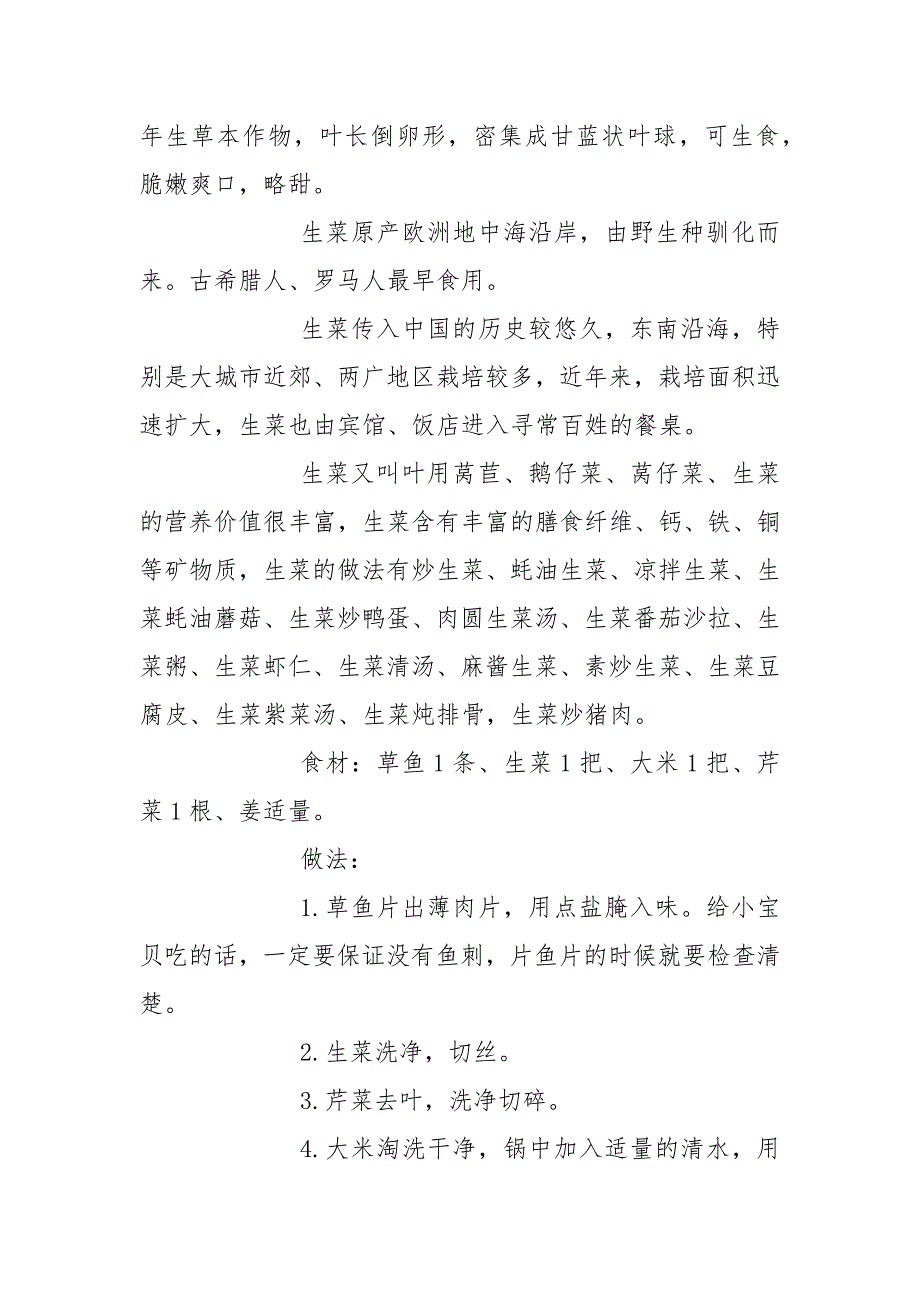 年生草本作物，叶长倒卵形，密集成甘蓝状叶球，可生食，
脆嫩爽口，略甜。
生菜原产欧洲地中海沿岸，由野生种驯化而
来。古希腊人、罗马人最早食用。
生菜传入中国的历史较悠久，东南沿海，特
别是大城市近郊、两广地区栽培较多，近年来，栽培面积迅
速扩大，生菜也由宾馆、饭店进入寻常百姓的餐桌。
生菜又叫叶用莴苣、鹅仔菜、莴仔菜、生菜
的营养价值很丰富，生菜含有丰富的膳食纤维、钙、铁、铜
等矿物质，生菜的做法有炒生菜、蚝油生菜、凉拌生菜、生
菜蚝油蘑菇、生菜炒鸭蛋、肉圆生菜汤、生菜番茄沙拉、生
菜粥、生菜虾仁、生菜清汤、麻酱生菜、素炒生菜、生菜豆
腐皮、生菜紫菜汤、生菜炖排骨，生菜炒猪肉。
食材：草鱼1条、生菜1把、大米1把、芹
菜1根、姜适量。
做法：
1.草鱼片出薄肉片，用点盐腌入味。给小宝
贝吃的话，一定要保证没有鱼刺，片鱼片的时候就要检查清
楚。
2.生菜洗净，切丝。
3.芹菜去叶，洗净切碎。
4.大米淘洗干净，锅中加入适量的清水，用